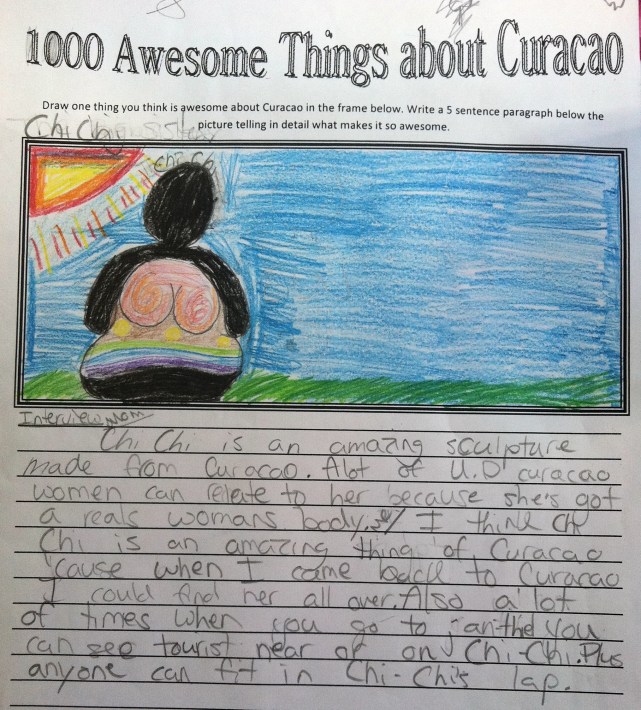 1000 Awesome Things about Curacao
Draw one thing you think is awesome about Curacao in the frame below. Write a 5 sentence paragraph below the
picture telling in detail what makes it so awesome.
Chi Ching sister
Chi Chi
Interview Mom
Chi Chi is an amazing sculpture
made from Curacao. Alot of U.D curacao
women can relate to her because she's got
a reals womans body. I think Chi
Chi is an amazing thing of Curacao
'cause when I came back to Curacao
I could find her all over. Also a lot
of times when you go to Jan-thiel you
can see tourist near of on Chi-Chi. Plus
anyone can fit in Chi-Chi's lap.